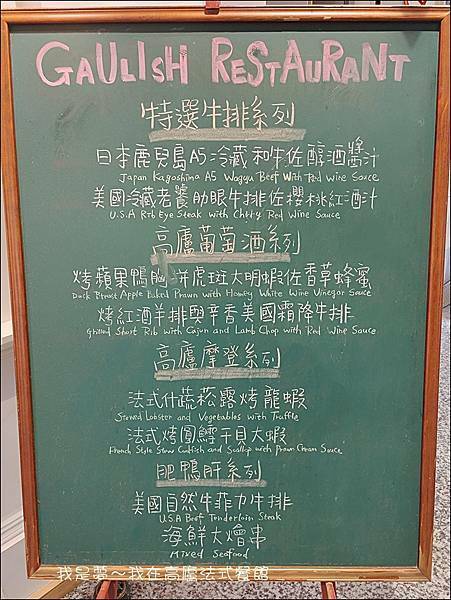 GAULISH RESTAURANT
特選牛排系列
日本鹿兒島A5冷藏和牛佐醇酒醬汁
Japan Kagoshima A5 Wagyu Beef With Red Wine Sauce
美國冷藏老饕肋眼牛排佐櫻桃紅酒汁
U.S.A Rib Eye Steak with Chrry Red Wine Sauce
高廬葡萄酒系列
烤蘋果鴨胸 拼虎斑大明蝦佐香草蜂蜜
Duck Breast Apple Baked Prawn with Honey White Wine Vinegar Sauce
烤紅酒羊排與辛香美國霜降牛排
Grilled Short Rib with Cajun and Lamb Chop with Red Wine Sauce
高廬摩登系列
法式什蔬菘露烤龍蝦
Stewed Lobster and Vegetables with Truffle
法式烤圓鱈干貝大蝦
French Style Stew Codfish and Scallop with Prawn Cream Sauce
肥鴨肝系列
美國自然牛菲力牛排
U.S.A Beef Tenderloin Steak
海鮮大燴串
Mixed Seafood
我是夢～我在高廬法式餐館